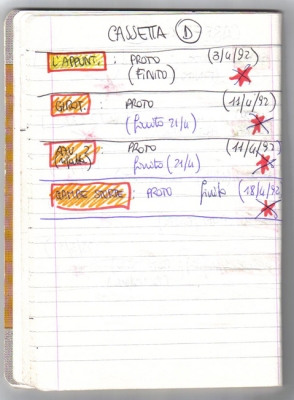 CASSETTA D
L'APPUNT. : PROTO (3/4/92)
(FINITO)
GIROT. : PROTO (11/4/92)
(finito 21/4)
2 : PROTO (11/4/92)
finito (21/4)
GAMBE STORTE : PROTO finito (18/4/92